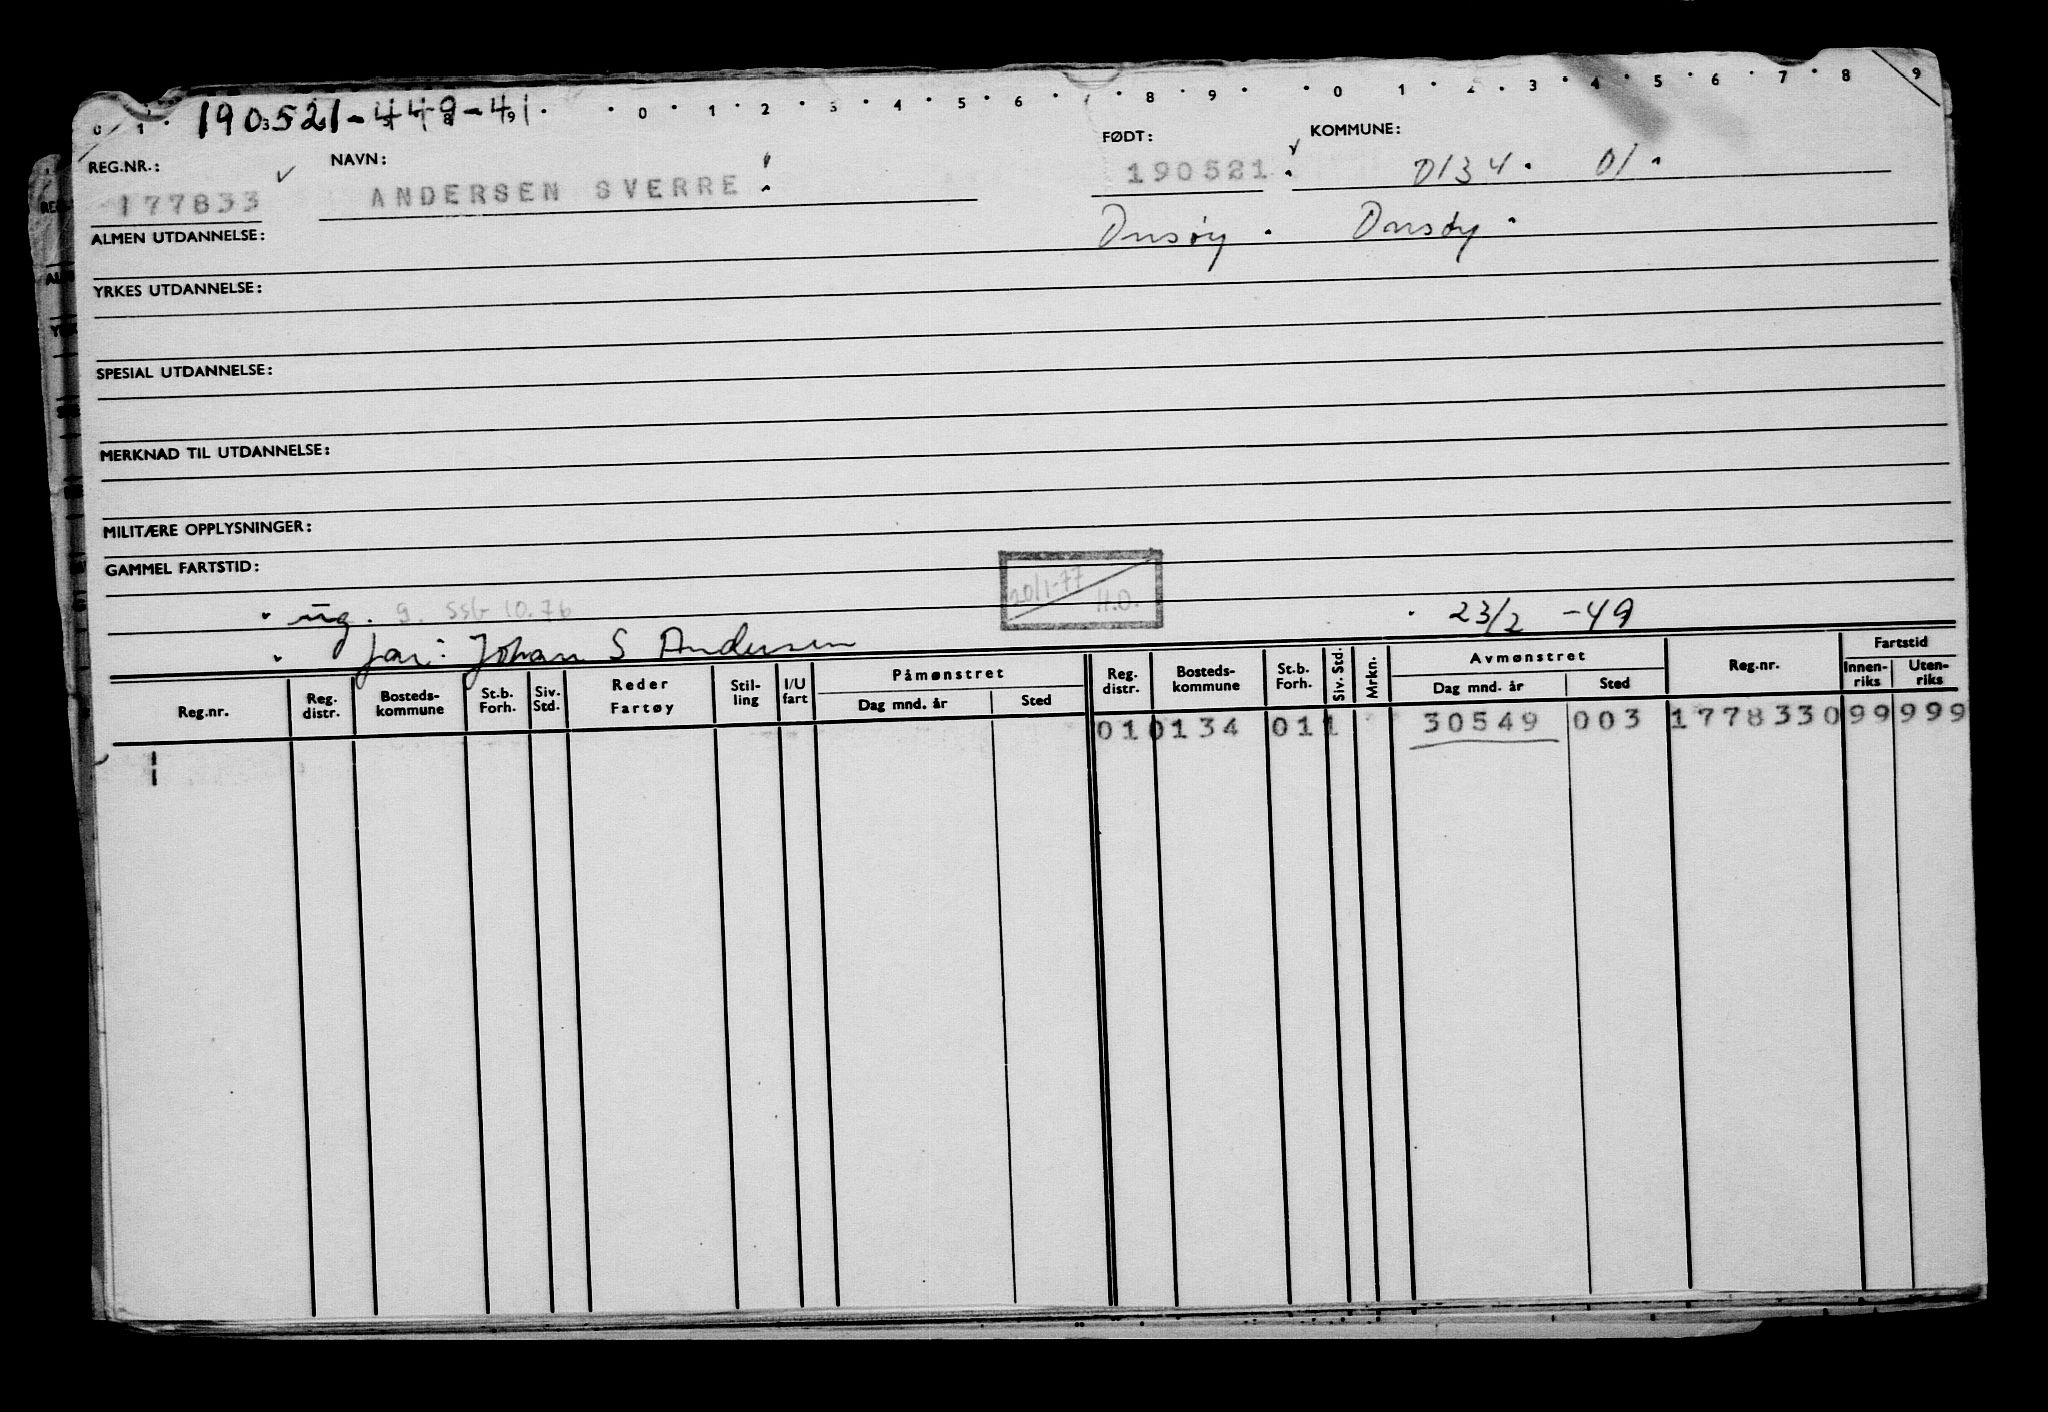 0 1 190521-449-41 0 1 2 3 4 5 6 7 8 9 0 1 2 3 4 5 6 7 8 9
REG.NR.: NAVN: FØDT: KOMMUNE:
177833 ANDERSEN SVERRE 190521 0134 01
ALMEN UTDANNELSE: Onsøy Onsøy
YRKES UTDANNELSE:
SPESIAL UTDANNELSE:
MERKNAD TIL UTDANNELSE:
MILITÆRE OPPLYSNINGER:
GAMMEL FARTSTID:
20/1-77 H.O.
ug. 9. SSb 10.76 23/2 -49
far: Johan S Andersen
Reg.nr. Reg. distr. Bosteds-kommune St.b. Forh. Siv. Std. Reder Fartøy Stil-ling I/U fart Påmønstret Dag mnd. år Sted Reg. distr. Bosteds-kommune St.b. Forh. Siv. Std. Mrkn. Avmønstret Dag mnd. år Sted Reg.nr. Fartstid Innen-riks Uten-riks
010134 011 30549 003 1778330 99 999